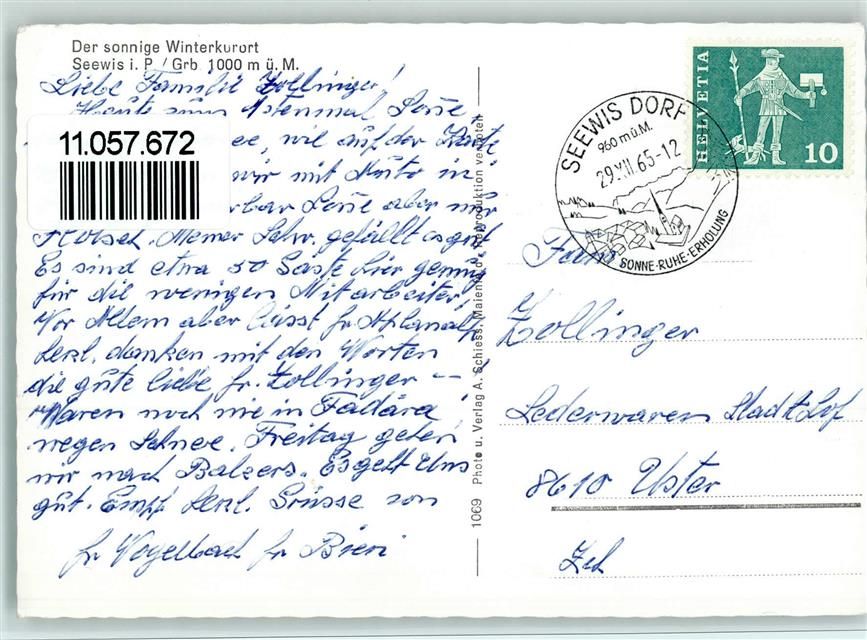 Der sonnige Winterkurort
Seewis i. P. / Grb 1000 m ü. M.
Liebe Familie Zollinger!
Heute zum 1stenmal Sonne,
wie auf der Karte
11.057.672
wir mit Auto in
Sonne aber nur
Flötsch. Meiner Schw. gefällt es gut
Es sind etwa 50 Gäste hier genüg
für die wenigen Mitarbeiter,
Vor Allem aber lässt fr. Aplanalp
herzl. danken mit den Worten
die gute liebe fr. Zollinger —
Waren noch nie in Fadära
wegen Schnee. Freitag gehen
wir nach Balzers. Es geht Uns
gut. Empf. herzl. Grüsse von
fr Vogelbach fr Bieri
1069 Photo u. Verlag A. Schiess, Maienfeld - Reproduktion verboten
HELVETIA
10
SEEWIS DORF
960 m ü. M.
29.XII.65-12
SONNE-RUHE-ERHOLUNG
Fam
Zollinger
Lederwaren Stadthof
8610 Uster
Zch